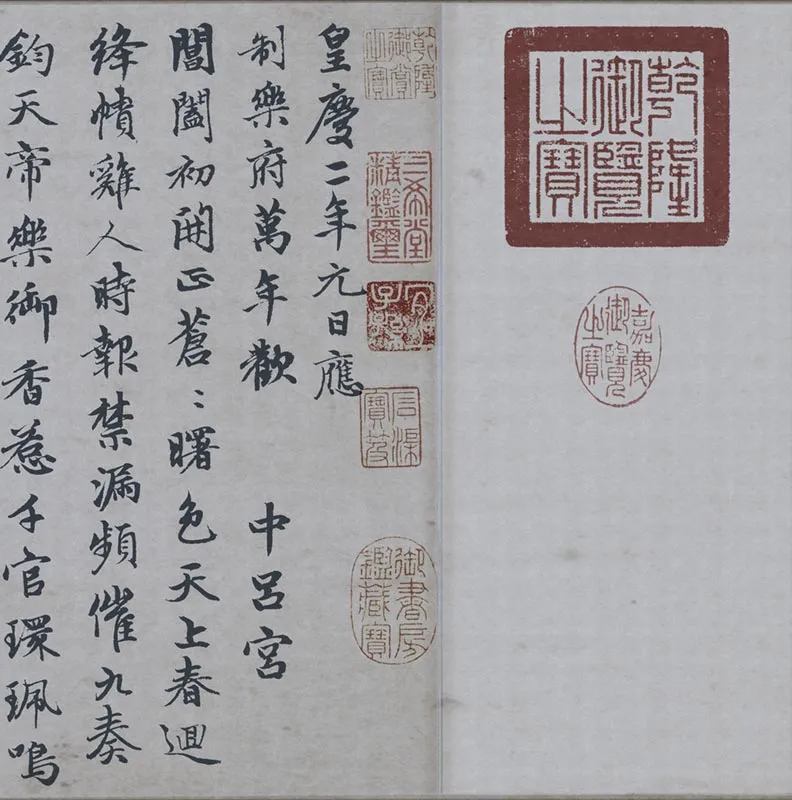 乾隆御覽之寶
嘉慶御覽之寶
乾隆御賞之寶
三希堂精鑑璽
宜子孫
石渠寶笈
御書房鑑藏寶
皇慶二年元日應
制樂府萬年歡 中呂宮
閶闔初開正蒼〻曙色天上春迴
絳幘雞人時報禁漏頻催九奏
鈞天帝樂御香惹千官環珮鳴